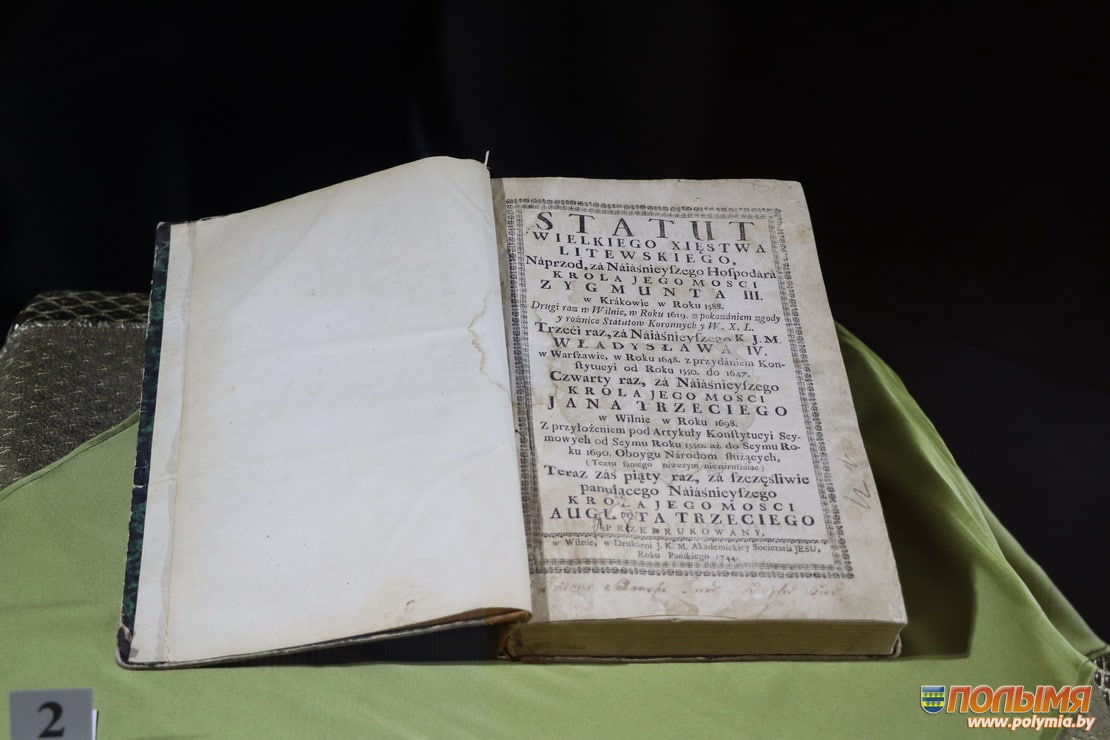 STATUT
WIELKIEGO XIĘSTWA
LITEWSKIEGO,
Náprzod, zá Náiáśnieyszego Hospodárá
KROLA JEGO MOSCI
ZYGMUNTA III.
w Krákowie w Roku 1588.
Drugi raz w Wilnie, w Roku 1619. z pokazániem zgody
y rożnice Statutow Koronnych y W. X. L.
Trzeći raz, zá Náiáśnieyszego K. J. M.
WŁADYSŁAWA IV.
w Warszawie, w Roku 1648. z przydániem Kon-
stytucyi od Roku 1550. do 1647.
Czwarty raz, zá Náiáśnieyszego
KROLA JEGO MOSCI
JANA TRZECIEGO
w Wilnie w Roku 1698.
Z przyłożeniem pod Artykuły Konstytucyi Sey-
mowych od Seymu Roku 1550. aż do Seymu Ro-
ku 1690. Oboygu Národom służących,
(Textu samego niwczym nienáruszáiąc)
Teraz záś piąty raz, zá szczęśliwie
panuiącego Náiáśnieyszego
KROLA JEGO MOSCI
AUGUSTA TRZECIEGO
PRZEDRUKOWANY,
w Wilnie, w Drukarni J. K. M. Akademickiey Societatis JESU,
Roku Pańskiego 1744.
2
ПОЛЫМЯ
www.polymia.by